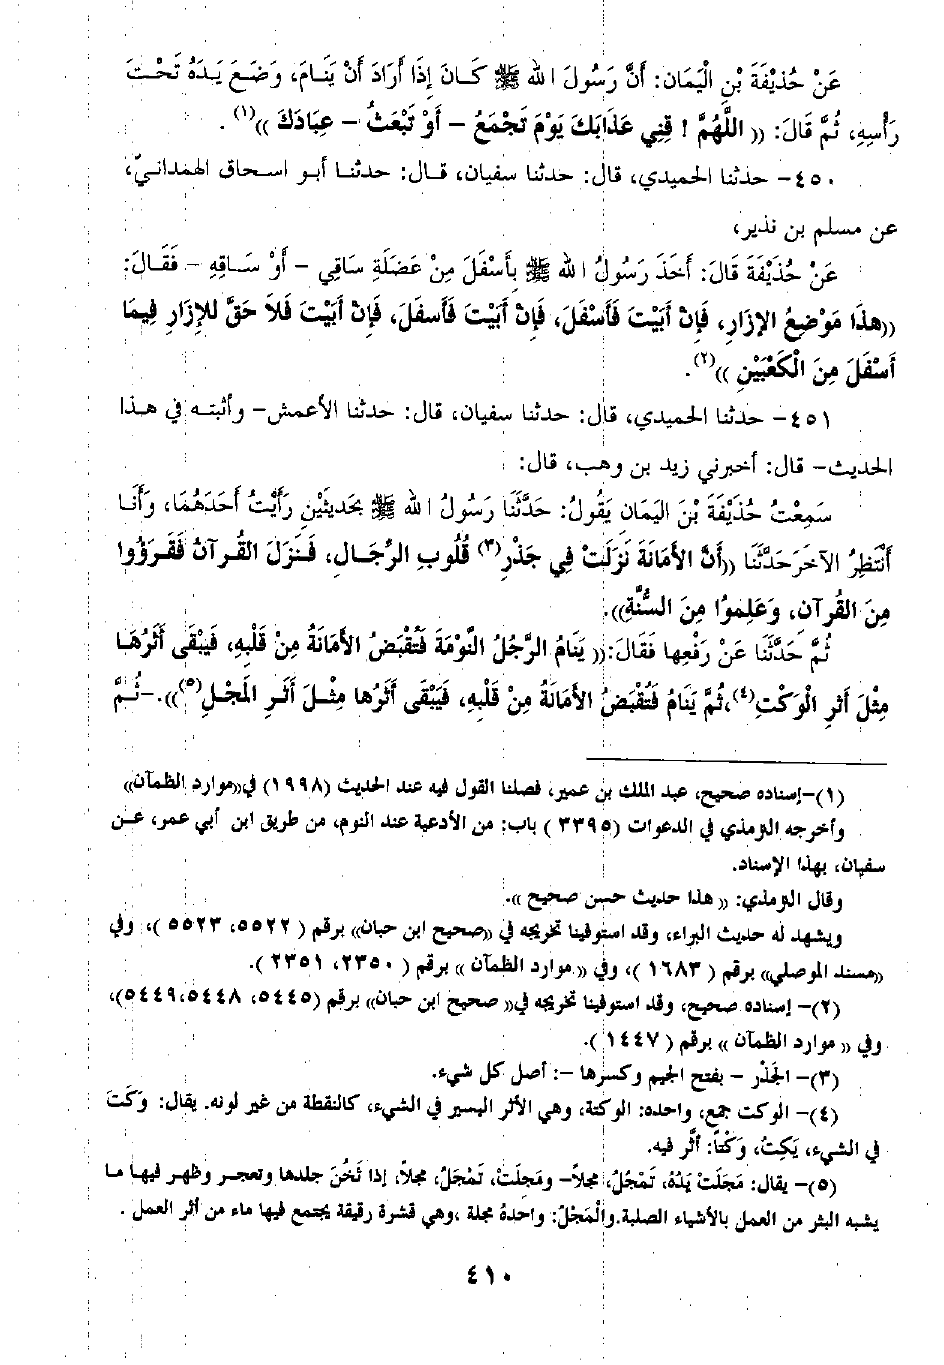 عَنْ حُذَيْفَةَ بْنِ الْيَمَان: أَنَّ رَسُولَ الله ﷺ كَـانَ إِذَا أَرَادَ أَنْ يَنَـامَ، وَضَـعَ يَـدَهُ تَحْـتَ
رَأْسِهِ، ثُمَّ قَالَ: (( اللَّهُمَّ ! قِنِي عَذَابَكَ يَوْمَ تَجْمَعُ – أَوْ تَبْعَثُ – عِبَادَكَ ))(١) .
٤٥٠- حدثنا الحميدي، قال: حدثنا سفيان، قـال: حدثنـا أبـو اسـحاق الهمدانـيّ،
عن مسلم بن نذير،
عَنْ حُذَيْفَةَ قَالَ: أَخَذَ رَسُولُ الله ﷺ بِأَسْفَلَ مِنْ عَضَلَةِ سَاقِي – أَوْ سَـاقِهِ – فَقَـالَ:
((هذَا مَوْضِعُ الإزَارِ، فَإِنْ أَبَيْتَ فَأَسْفَلَ، فَإِنْ أَبَيْتَ فَأَسفَلَ، فَإِنْ أَبَيْتَ فَلاَ حَقَّ للإزَارِ فِيمَا
أَسْفَلَ مِنَ الْكَعْبَيْنِ ))(٢).
٤٥١- حدثنا الحميدي، قال: حدثنا سفيان، قال: حدثنا الأعمش- وأثبتـه في هـذا
الحديث- قال: أخبرني زيد بن وهب، قال:
سَمِعْتُ حُذَيْفَةَ بْنَ اليَمَان يَقُولُ: حَدَّثَنَا رَسُولُ الله ﷺ بحَديثَيْنِ رَأَيْتُ أَحَدَهُمَا، وَأَنَـا
أَنْتَظِرُ الآخَرَ حَدَّثَنَا ((أَنَّ الأَمَانَةَ نَزَلَتْ فِي جَذْرِ(٣) قُلُوبِ الرِّجَـالِ، فَـنَزَلَ القُـرآنُ فَقَـرَؤُوا
مِنَ القُرآن، وَعَلِمُوا مِنَ السُّنَّةِ)).
ثُمَّ حَدَّثَنَا عَنْ رَفْعِها فَقَالَ:(( يَنَامُ الرَّجُلُ النَّوْمَةَ فَتُقْبَضُ الأَمَانَةُ مِنْ قَلْبِهِ، فَيَبْقَى أَثَرُهَـا
مِثْلَ أَثَرِ الْوَكْتِ(٤)،ثُمَّ يَنَامُ فَتُقْبَضُ الأَمَانَةُ مِنْ قَلْبِهِ، فَيَبْقَى أَثَرُها مِثْـلَ أَثَـرِ المَجْـلِ(٥))).-ثُـمَّ
(١)-إسناده صحيح، عبد الملك بن عمير، فصلنا القول فيه عند الحديث (١٩٩٨) في((موارد الظمآن))
وأخرجه الترمذي في الدعوات (٣٣٩٥ ) باب: من الأدعية عند النوم، من طريق ابن أبي عمر، عـن
سفيان، بهذا الإسناد.
وقال الترمذي: (( هذا حديث حسن صحيح )).
ويشهد له حديث البراء، وقد استوفينا تخريجه في ((صحيح ابن حبان)) برقم ( ٥٥٢٢، ٥٥٢٣ )، وفي
((مسند الموصلي)) برقم ( ١٦٨٣ )، وفي (( موارد الظمآن )) برقم ( ٢٣٥٠، ٢٣٥١ ).
(٢)- إسناده صحيح، وقد استوفينا تخريجه في(( صحيح ابن حبان)) برقم (٥٤٤٥، ٥٤٤٨،٥٤٤٩)،
وفي (( موارد الظمآن )) برقم ( ١٤٤٧ ).
(٣)- الجَذْر – بفتح الجيم وكسرها –: أصل كل شيء.
(٤)- الوكت جمع، واحده: الوكتة، وهي الأثر اليسير في الشيء، كالنقطة من غير لونه. يقال: وَكَتَ
في الشيء، يَكِتُ، وَكْتاً: أثَّر فيه.
(٥)- يقال: مَجَلَتْ يَدُهُ، تَمْجُلُ، مجْلاً- ومَجِلَتْ، تَمْجَلُ، مجَلاً، إذا ثَخُنَ جلدها وتعجر وظهر فيهـا مـا
يشبه البثر من العمل بالأشياء الصلبة.والْمَجْلُ: واحدهُ مجلة ،وهي قشرة رقيقة يجتمع فيها ماء من أثر العمل .
٤١٠